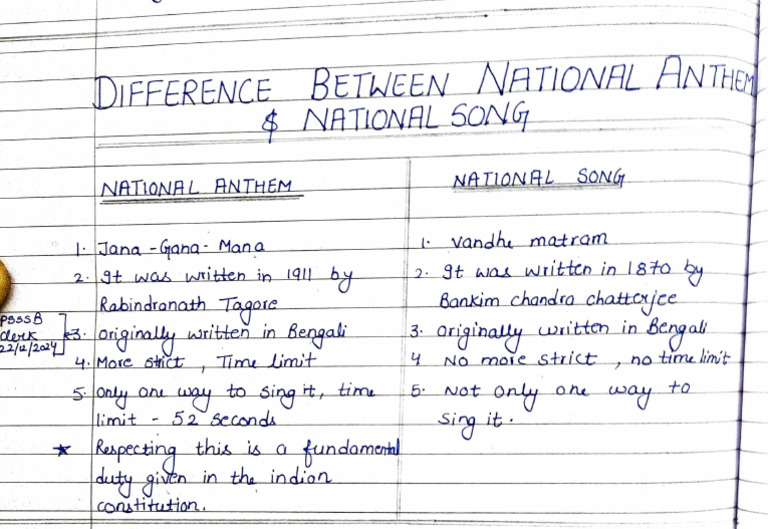 DIFFERENCE BETWEEN NATIONAL ANTHEM
& NATIONAL SONG
NATIONAL ANTHEM
1. Jana-Gana-Mana
2. It was written in 1911 by
Rabindranath Tagore
PSSSB
clerk
22/12/2024
3. originally written in Bengali
4. More strict, Time limit
5. only one way to sing it, time
limit - 52 seconds
★ Respecting this is a fundamental
duty given in the indian
constitution.
NATIONAL SONG
1. Vandhe matram
2. It was written in 1870 by
Bankim chandra chatterjee
3. originally written in Bengali
4 No more strict, no time limit
5. Not only one way to
sing it.